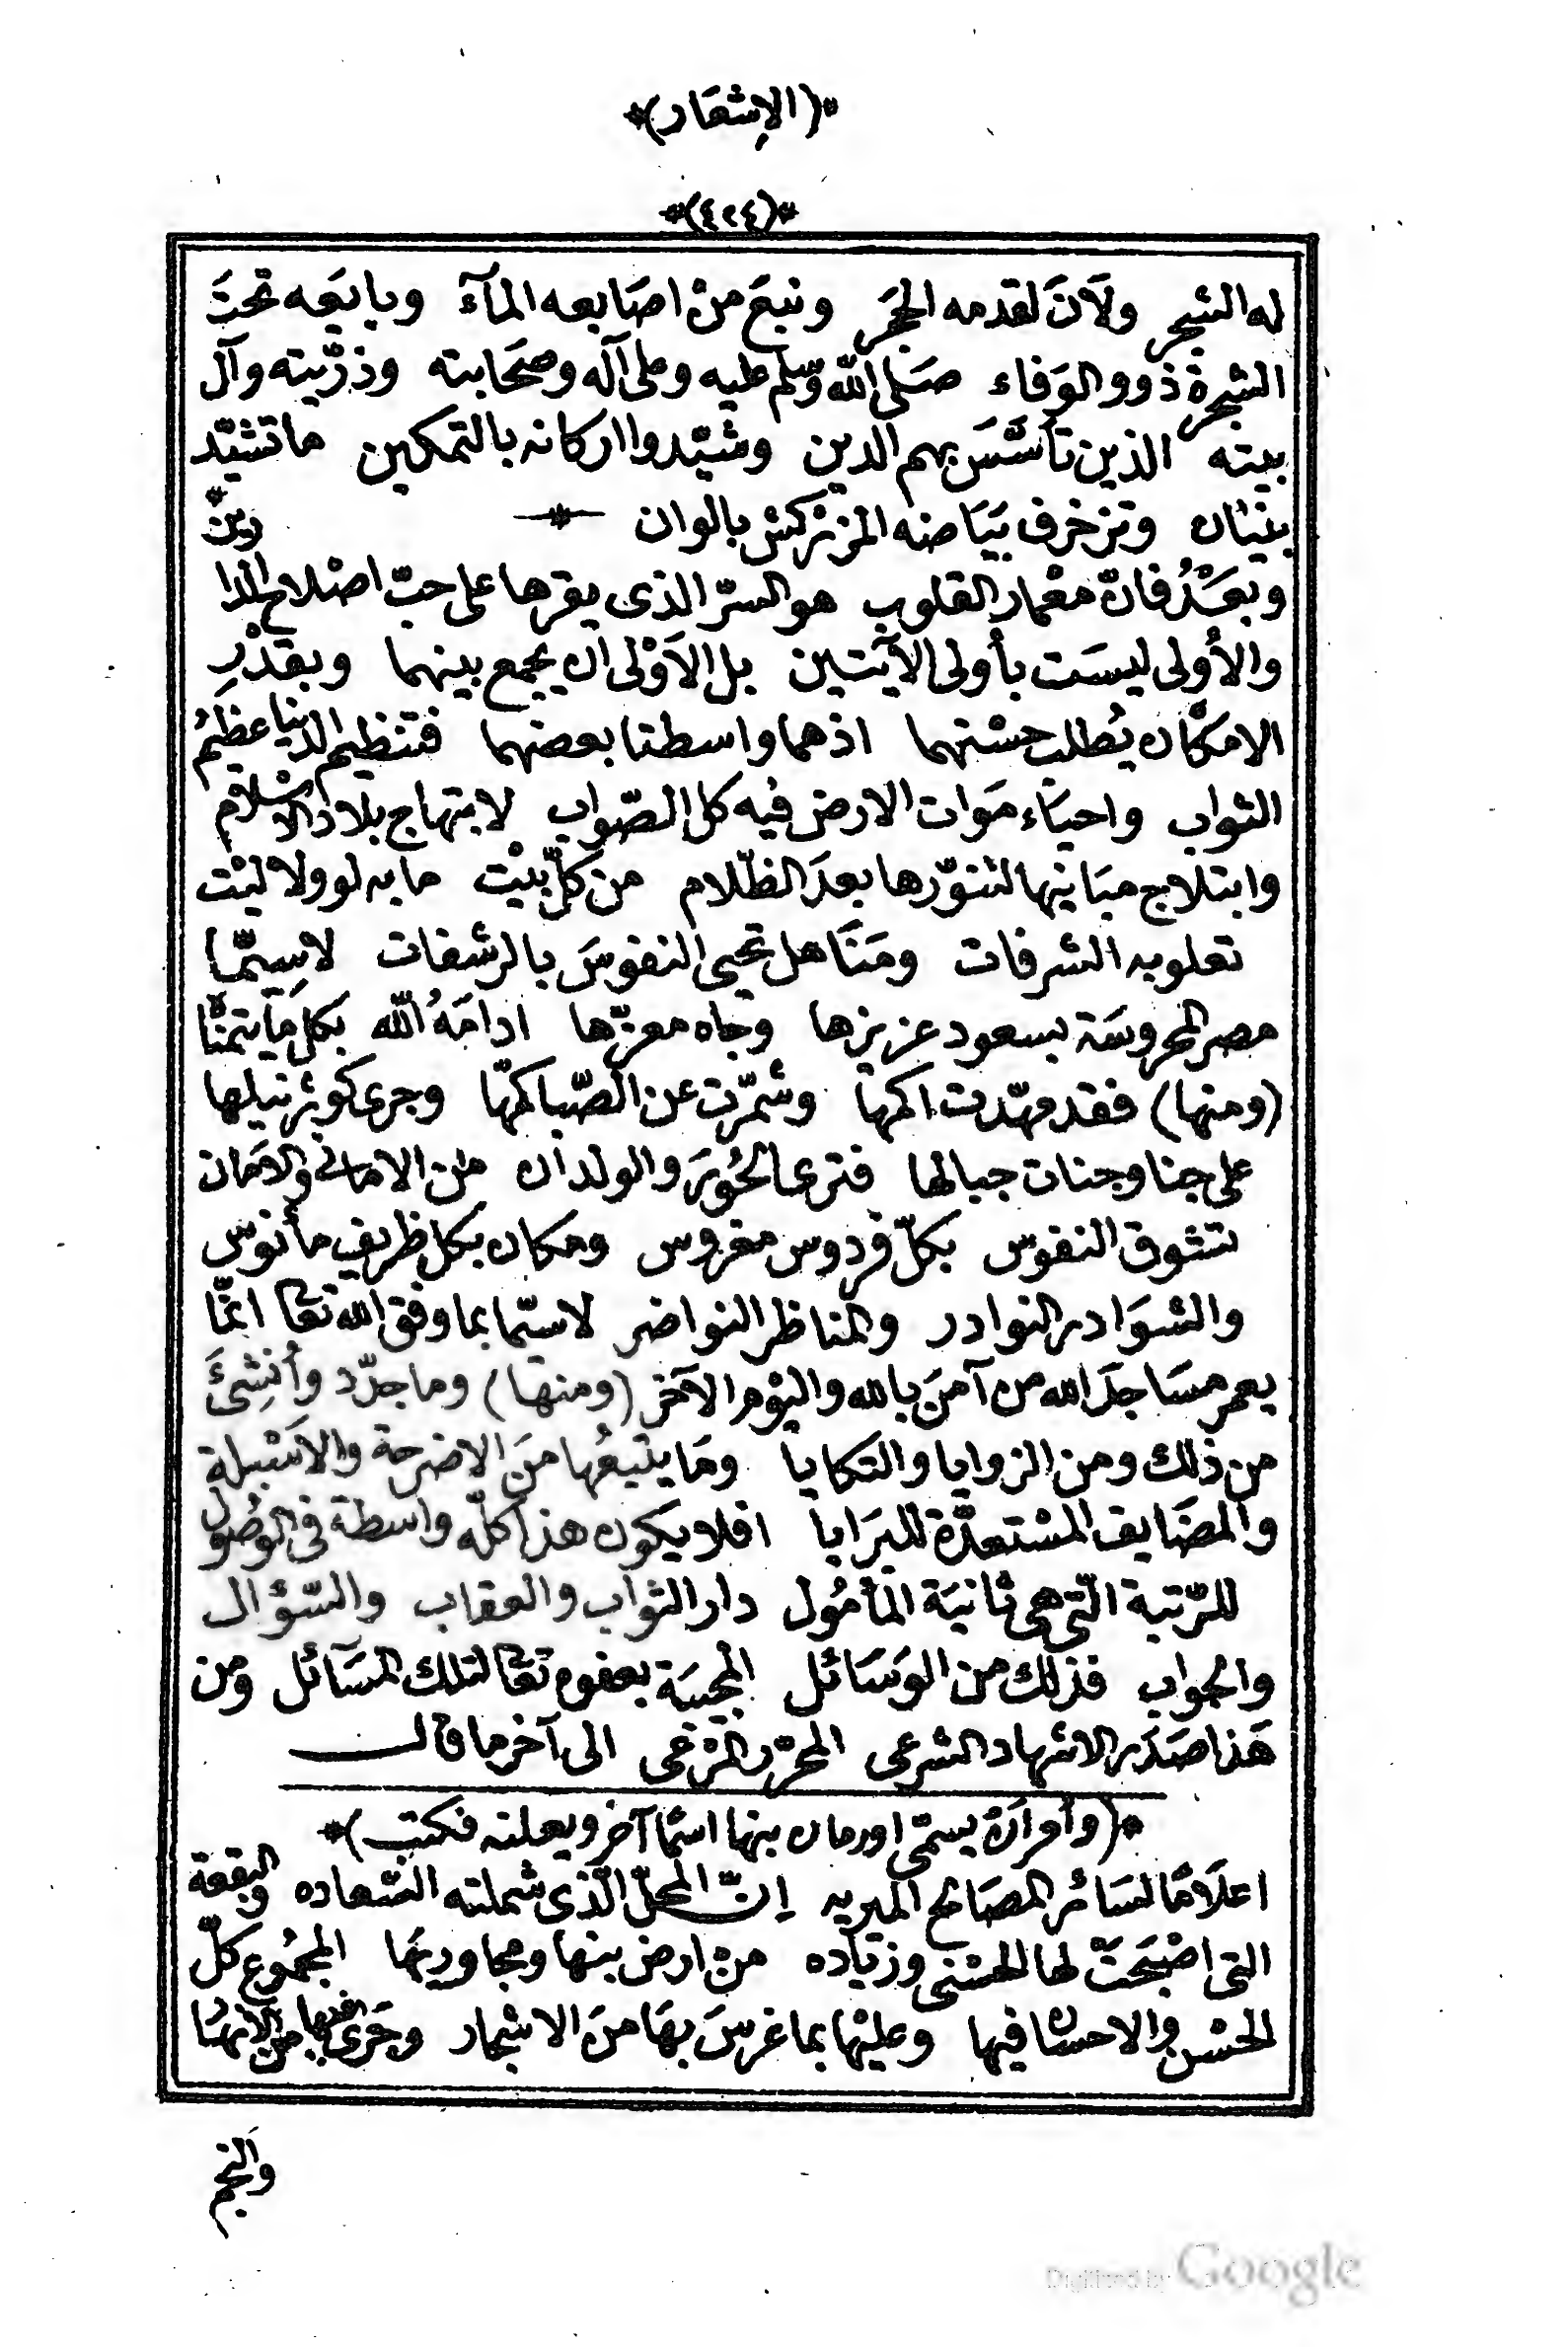 *(الإشعار)*
*(٤٢٤)*
له الشجر ولَانَ لقدمه الحجَر ونبعَ منْ اصَابعه المآءَ وبايَعَه تحتَ
الشجرة ذوو الوَفاء صَلى الله وسّلم عليه وعلى آله وصحَابته وذرّيته وآل
بيته الذين تأسَّسَ بهم الدين وشيّدوا اركانه بالتمكين ما تشيّد
بنيان وتزخرف بيَاضه المزركش بالوان
وبعَدُ فانّ معْمار القلوب هو السّر الذى يقرها على حبّ اصْلاح الدارين
والأولى ليسَت بأولى الآيتين بل الاَوْلى ان يجمع بينهما وبقدْرِ
الامكان يُطلب حسْنهما اذ هما واسطتا بعضهما فتنظيم الدنيا عظيمُ
الثواب واحيَاء مَوات الارض فيه كل الصّواب لابتهاج بلاد الاسْلام
وابتلاج مبَانيها لتنوّرها بعدَ الظّلام من كلّ بيْت ما به لو ولا ليْت
تعلو به الشرفات ومَنَاهل تحيى النفوسَ بالرشفات لاسِيمّا
مصر المحروسَة بسعود عزيزها وجاه معزّها ادامَهُ الله بكل مَا يتمنّاه
(ومنها) فقد مهّدت اكمها وشمّرت عن الصّبا كمّها وجرى كوثر نيلها
على جنا وجنات جبالها فترى الحُورَ والولدان من الامانى والامَان
تتشوق النفوس بكلّ فردوس مغروس ومكان بكل ظريف مأنوس
والشوَادر النوادر والمناظر النواضر لاسيّما بما وفق الله تعَا انمّا
يعمر مسَاجدَ الله من آمنَ بالله واليوْم الآخر (ومنها) وما جدّد وأُنشِئَ
من ذلك ومن الزوايا والتكايا ومَا يتبعُها منَ الاضرحة والاَسْبلة
والمضَايف المسْتعدّة للبرَايا افلا يكون هذا كلّه واسطة فى الوصُول
للرّتبة الّتى هى ثانيَة المأمُول دار الثواب والعقاب والسّؤال
والجواب فذلك من الوَسَائل المجيبَة بعفوه تعَا لتلك المسَائل ومن
هَذا صَدَر الاشهاد الشرعى المحرّر المرْعى الى آخر ما قال
*(وأمرَ أنْ يسمّى اورمان بنها اسْما آخر ويعلنه فكتب)*
اعلاَمًا لسَائر المصَالح الميريه إنّ المحلّ الّذى شملته السّعاده والبقعة
التى اصْبَحَتْ لها الحسْنى وزيَاده منْ ارض بنها ومجاوريهَا المجمُوع كلّ
الحسْن والاحسان فيها وعليْها بما غرسَ بهَا منَ الاشجار وجَرى فيها من الانهَار
وَالنجم
Digitized by Google